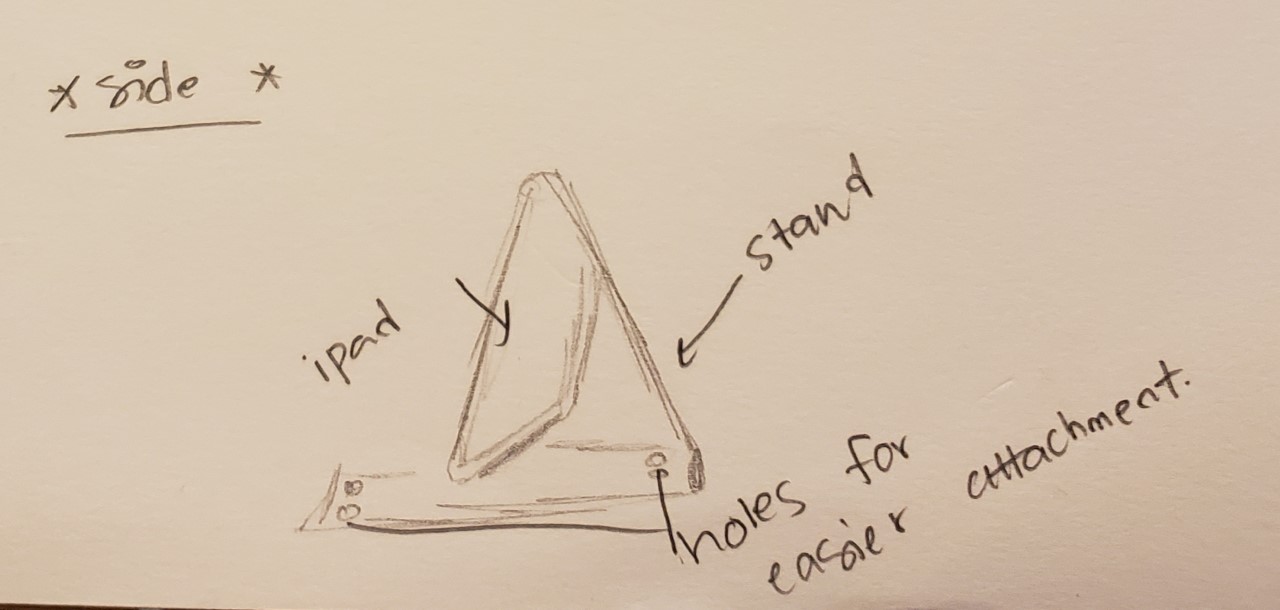 * side *
stand
ipad
holes for
easier attachment.